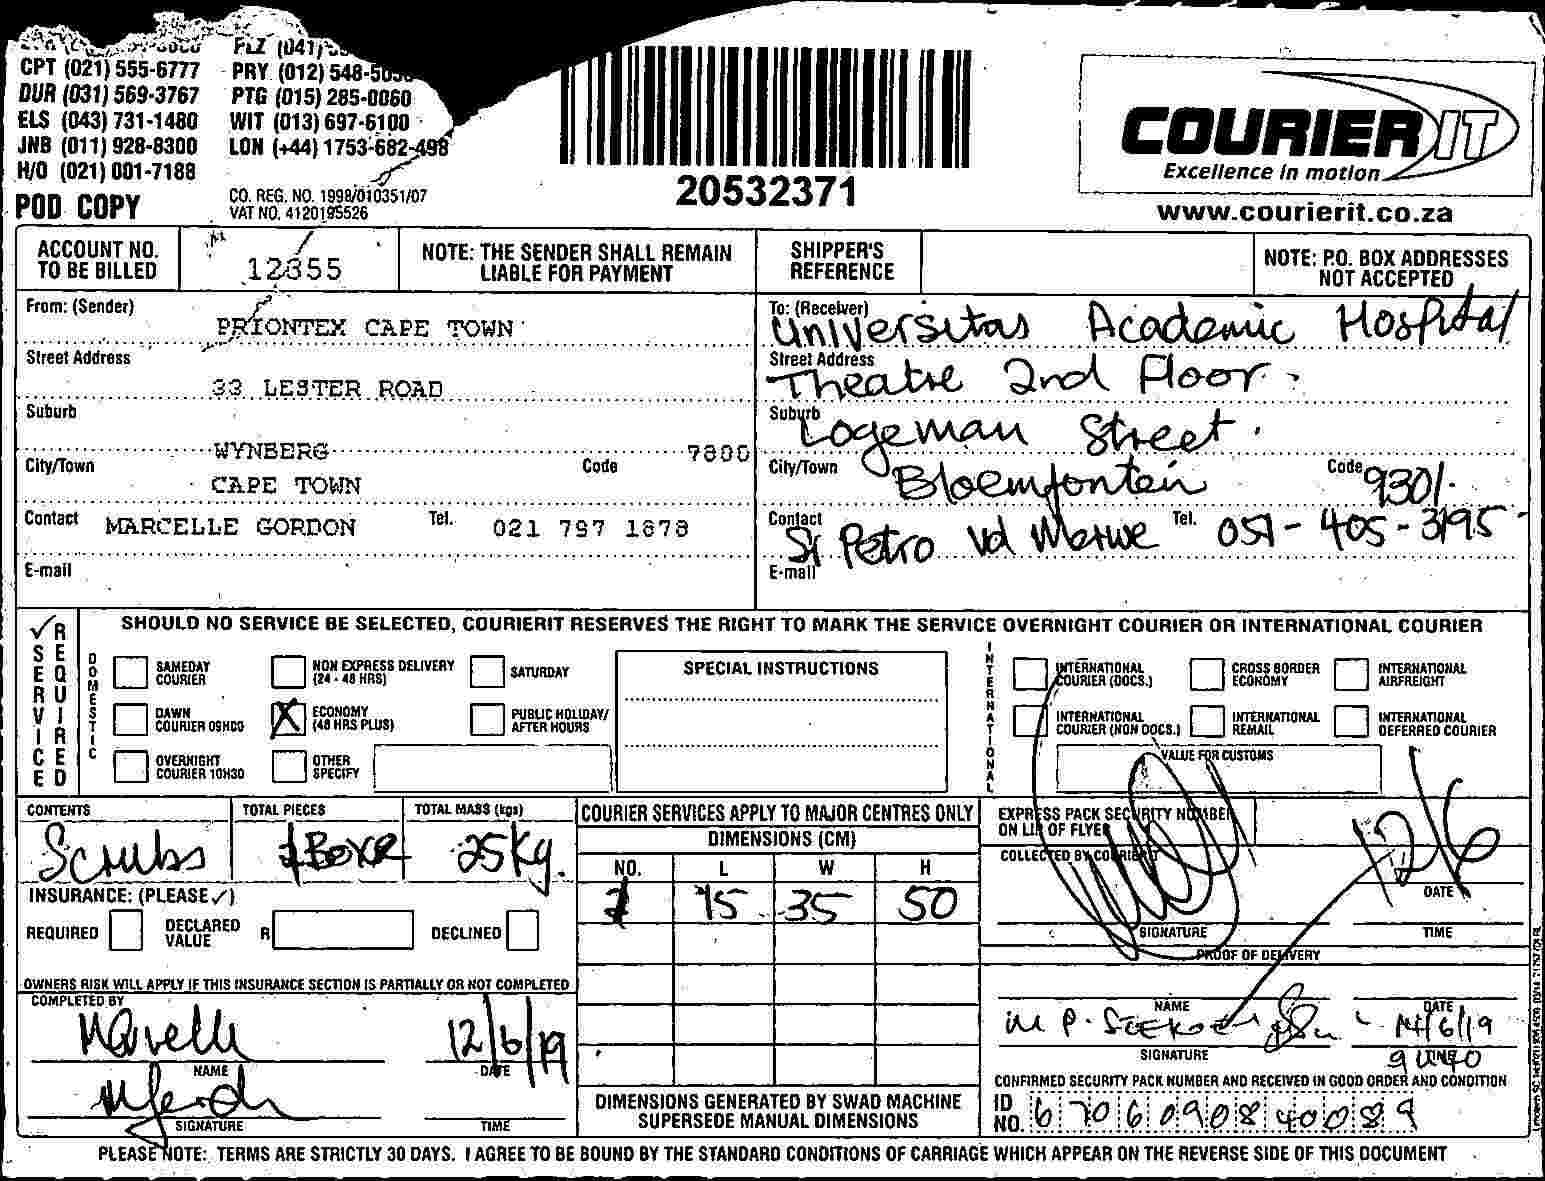 CPT (021) 555-6777 PRY (012) 548-
DUR (031) 569-3767 PTG (015) 285-0060
ELS (043) 731-1480 WIT (013) 697-6100
JNB (011) 928-8300 LON (+44) 1753-682-498
H/O (021) 001-7188
POD COPY
CO. REG. NO. 1998/010351/07
VAT NO. 4120195526
20532371
COURIER IT
Excellence in motion
www.courierit.co.za
ACCOUNT NO. TO BE BILLED
12355
NOTE: THE SENDER SHALL REMAIN LIABLE FOR PAYMENT
SHIPPER'S REFERENCE
NOTE: P.O. BOX ADDRESSES NOT ACCEPTED
From: (Sender) PRIONTEX CAPE TOWN
Street Address 33 LESTER ROAD
Suburb WYNBERG
City/Town CAPE TOWN Code 7800
Contact MARCELLE GORDON Tel. 021 797 1878
E-mail
To: (Receiver) Universitas Academic Hospital
Street Address Theatre 2nd Floor.
Suburb Logeman Street.
City/Town Bloemfontein Code 9301.
Contact Sr Petro vd Merwe Tel. 051-405-3195
E-mail
✓ SERVICE REQUIRED
SHOULD NO SERVICE BE SELECTED, COURIERIT RESERVES THE RIGHT TO MARK THE SERVICE OVERNIGHT COURIER OR INTERNATIONAL COURIER
DOMESTIC
SAMEDAY COURIER
NON EXPRESS DELIVERY (24 - 48 HRS)
SATURDAY
DAWN COURIER 09H00
X ECONOMY (48 HRS PLUS)
PUBLIC HOLIDAY/ AFTER HOURS
OVERNIGHT COURIER 10H30
OTHER SPECIFY
SPECIAL INSTRUCTIONS
INTERNATIONAL
INTERNATIONAL COURIER (DOCS.)
CROSS BORDER ECONOMY
INTERNATIONAL AIRFREIGHT
INTERNATIONAL COURIER (NON DOCS.)
INTERNATIONAL REMAIL
INTERNATIONAL DEFERRED COURIER
VALUE FOR CUSTOMS
CONTENTS Scrubs
TOTAL PIECES 1 Boxe
TOTAL MASS (kgs) 25kg.
INSURANCE: (PLEASE ✓)
REQUIRED
DECLARED VALUE R
DECLINED
OWNERS RISK WILL APPLY IF THIS INSURANCE SECTION IS PARTIALLY OR NOT COMPLETED
COMPLETED BY
Marcelle 12/6/19
NAME DATE
SIGNATURE TIME
COURIER SERVICES APPLY TO MAJOR CENTRES ONLY
DIMENSIONS (CM)
NO. L W H
1 75 35 50
DIMENSIONS GENERATED BY SWAD MACHINE SUPERSEDE MANUAL DIMENSIONS
EXPRESS PACK SECURITY NUMBER ON LIP OF FLYER
COLLECTED BY COURIERIT
12/6
DATE
SIGNATURE TIME
PROOF OF DELIVERY
NAME DATE
14/6/19
SIGNATURE TIME
9 40
CONFIRMED SECURITY PACK NUMBER AND RECEIVED IN GOOD ORDER AND CONDITION
ID NO. 6706090840089
PLEASE NOTE: TERMS ARE STRICTLY 30 DAYS. I AGREE TO BE BOUND BY THE STANDARD CONDITIONS OF CARRIAGE WHICH APPEAR ON THE REVERSE SIDE OF THIS DOCUMENT